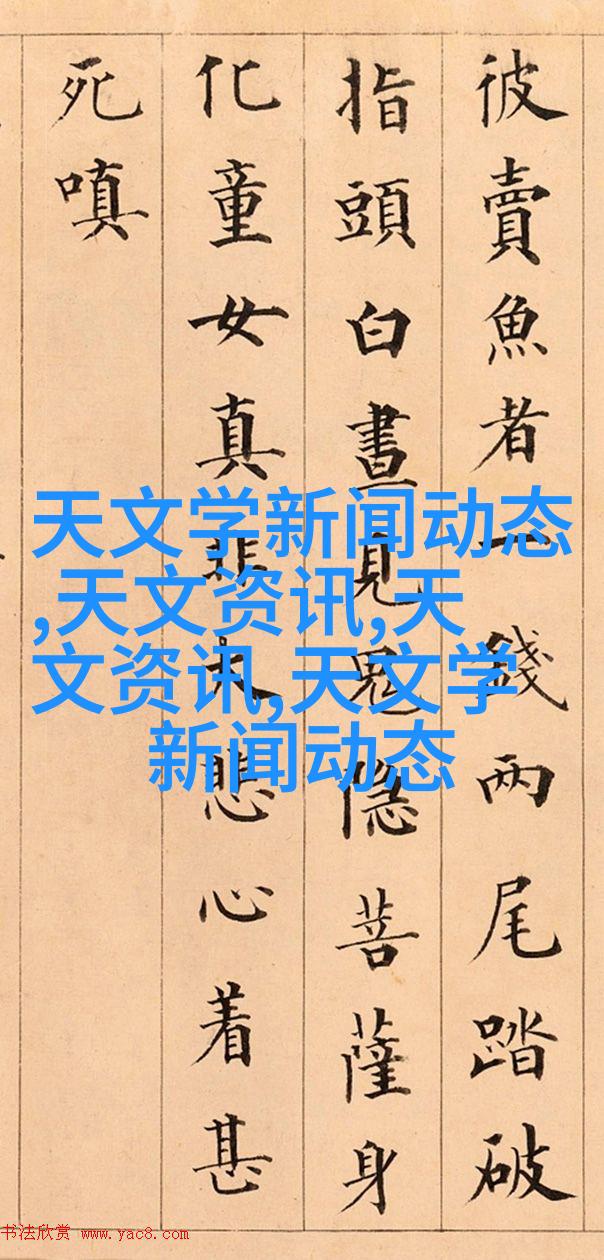 彼賣魚者一錢兩尾踏破
指頭白晝見鬼隐菩薩身
化童女真非大悲心着甚
死嗔
天文学新闻动态
,天文资讯,天
文资讯,天文学
新闻动态
书法欣赏 www.yac8.com